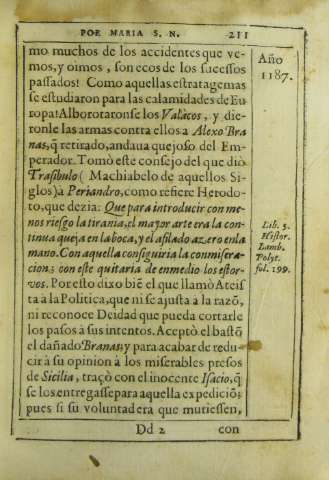 POR MARIA S. N. 211
mo muchos de los accidentes que ve-
mos, y oimos, son ecos de los sucessos
passados! Como aquellas estratagemas
se estudiaron para las calamidades de Eu-
ropa! Alborotaronse los Valacos, y die-
ronle las armas contra ellos a Alexo Bra-
nas, q̃ retirado, andaua quejoso del Em-
perador. Tomò este consejo del que diò
Trasibulo (Machiabelo de aquellos Si-
glos) à Periandro, como refiere Herodo-
to, que dezia: Que para introducir con me-
nos riesgo la tirania, el mayor arte era la con-
tinua queja en la boca, y el afilado azero en la
mano. Con aquella consiguiria la conmisera-
cion; con este quitaria de enmedio los estor-
vos. Por esto dixo biẽ el que llamò Ateis-
ta à la Politica, que ni se ajusta à la razõ,
ni reconoce Deidad que pueda cortarle
los pasos à sus intentos. Aceptò el bastõ
el dañado Branas; y para acabar de redu-
cir à su opinion à los miserables presos
de Sicilia, traçò con el inocente Isacio, q̃
se los entregasse para aquella expediciõ;
pues si su voluntad era que muriessen,
Dd 2 con
Año
1187.
Lib. 5.
Histor.
Lamb.
Polyt.
fol. 199.